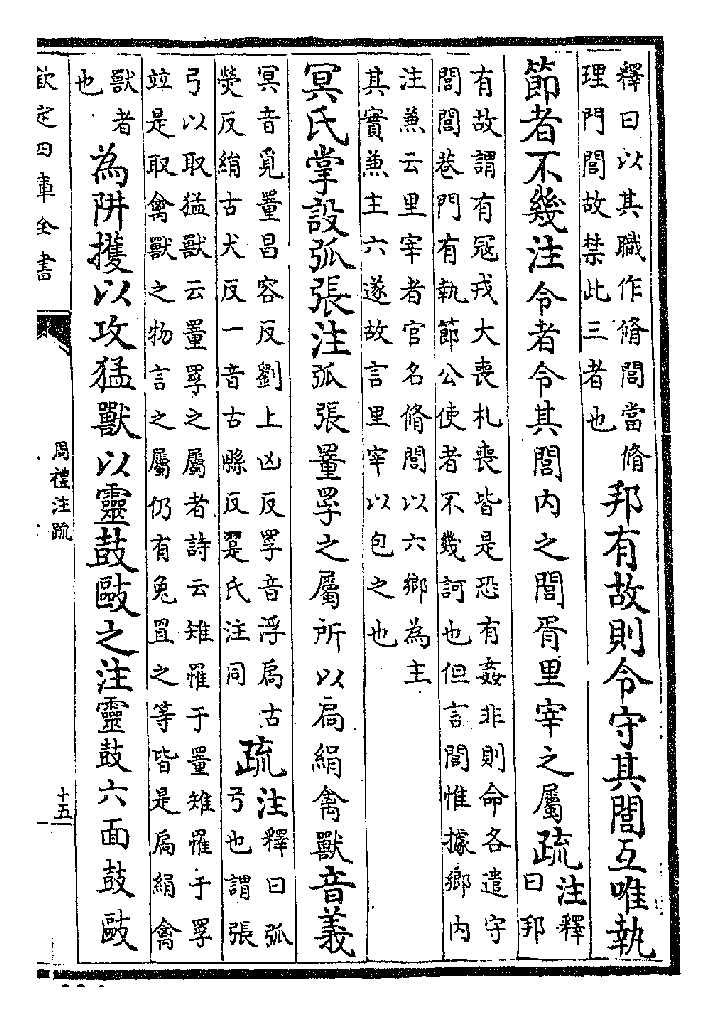 釋曰以其職作脩閭當脩
理門閭故禁此三者也
邦有故則令守其閭互唯執
節者不幾注令者令其閭内之閭胥里宰之屬疏
注釋
曰邦
有故謂有冦戎大喪札喪皆是恐有姦非則命各遣守
閭閭巷門有執節公使者不幾訶也但言閭惟據鄉内
注兼云里宰者官名脩閭以六鄉為主
其實兼主六遂故言里宰以包之也
冥氏掌設弧張注弧張罿罦之屬所以扃絹禽獸音義
冥音覓罿昌容反劉上凶反罦音浮扃古
熒反絹古犬反一音古縣反翨氏注同
疏
注釋曰弧
弓也謂張
弓以取猛獸云罿罦之屬者詩云雉罹于罿雉罹于罦
竝是取禽獸之物言之屬仍有兔罝之等皆是扃絹禽
獸者
也
為阱擭以攻猛獸以靈鼓敺之注靈鼓六面鼓敺
欽定四庫全書
周禮注疏
十五